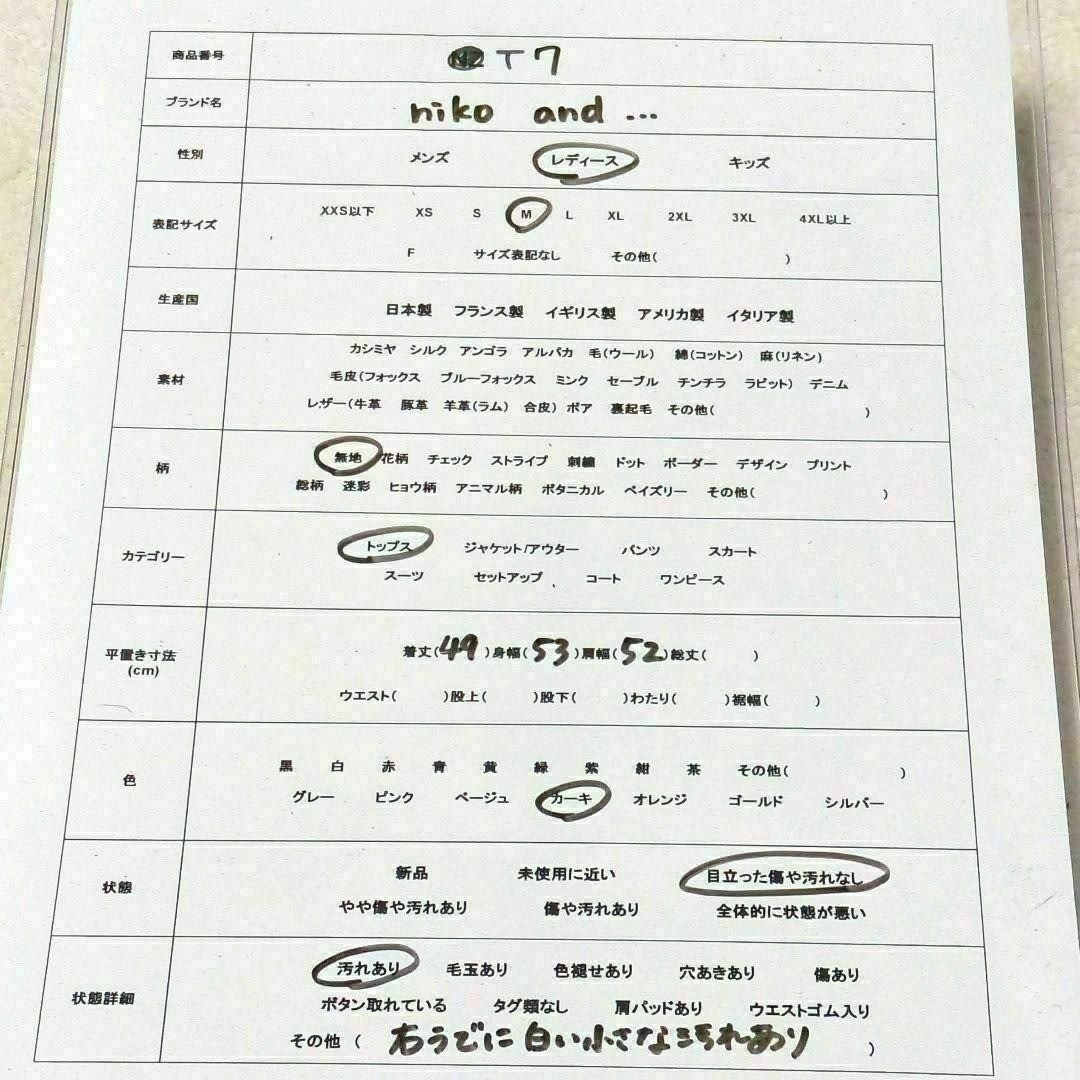 商品番号 T7
ブランド名 niko and ...
性別 メンズ レディース キッズ
表記サイズ XXS以下 XS S M L XL 2XL 3XL 4XL以上
F サイズ表記なし その他( )
生産国 日本製 フランス製 イギリス製 アメリカ製 イタリア製
素材 カシミヤ シルク アンゴラ アルパカ 毛(ウール) 綿(コットン) 麻(リネン)
毛皮(フォックス ブルーフォックス ミンク セーブル チンチラ ラビット) デニム
レザー(牛革 豚革 羊革(ラム) 合皮) ボア 裏起毛 その他( )
柄 無地 花柄 チェック ストライプ 刺繍 ドット ボーダー デザイン プリント
総柄 迷彩 ヒョウ柄 アニマル柄 ボタニカル ペイズリー その他( )
カテゴリー トップス ジャケット/アウター パンツ スカート
スーツ セットアップ コート ワンピース
平置き寸法 着丈(49)身幅(53)肩幅(52)総丈( )
(cm) ウエスト( )股上( )股下( )わたり( )裾幅( )
色 黒 白 赤 青 黄 緑 紫 紺 茶 その他( )
グレー ピンク ベージュ カーキ オレンジ ゴールド シルバー
状態 新品 未使用に近い 目立った傷や汚れなし
やや傷や汚れあり 傷や汚れあり 全体的に状態が悪い
状態詳細 汚れあり 毛玉あり 色褪せあり 穴あきあり 傷あり
ボタン取れている タグ類なし 肩パッドあり ウエストゴム入り
その他 ( 右うでに白い小さな汚れあり )